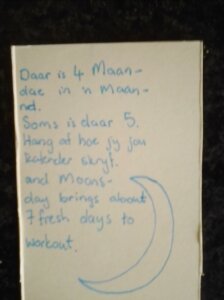 Daar is 4 Maan-
dae in 'n Maan-
nd.
Soms is daar 5.
Hang af hoe jy jou
kalender skryf.
and Moons-
day brings about
7 fresh days to
workout.